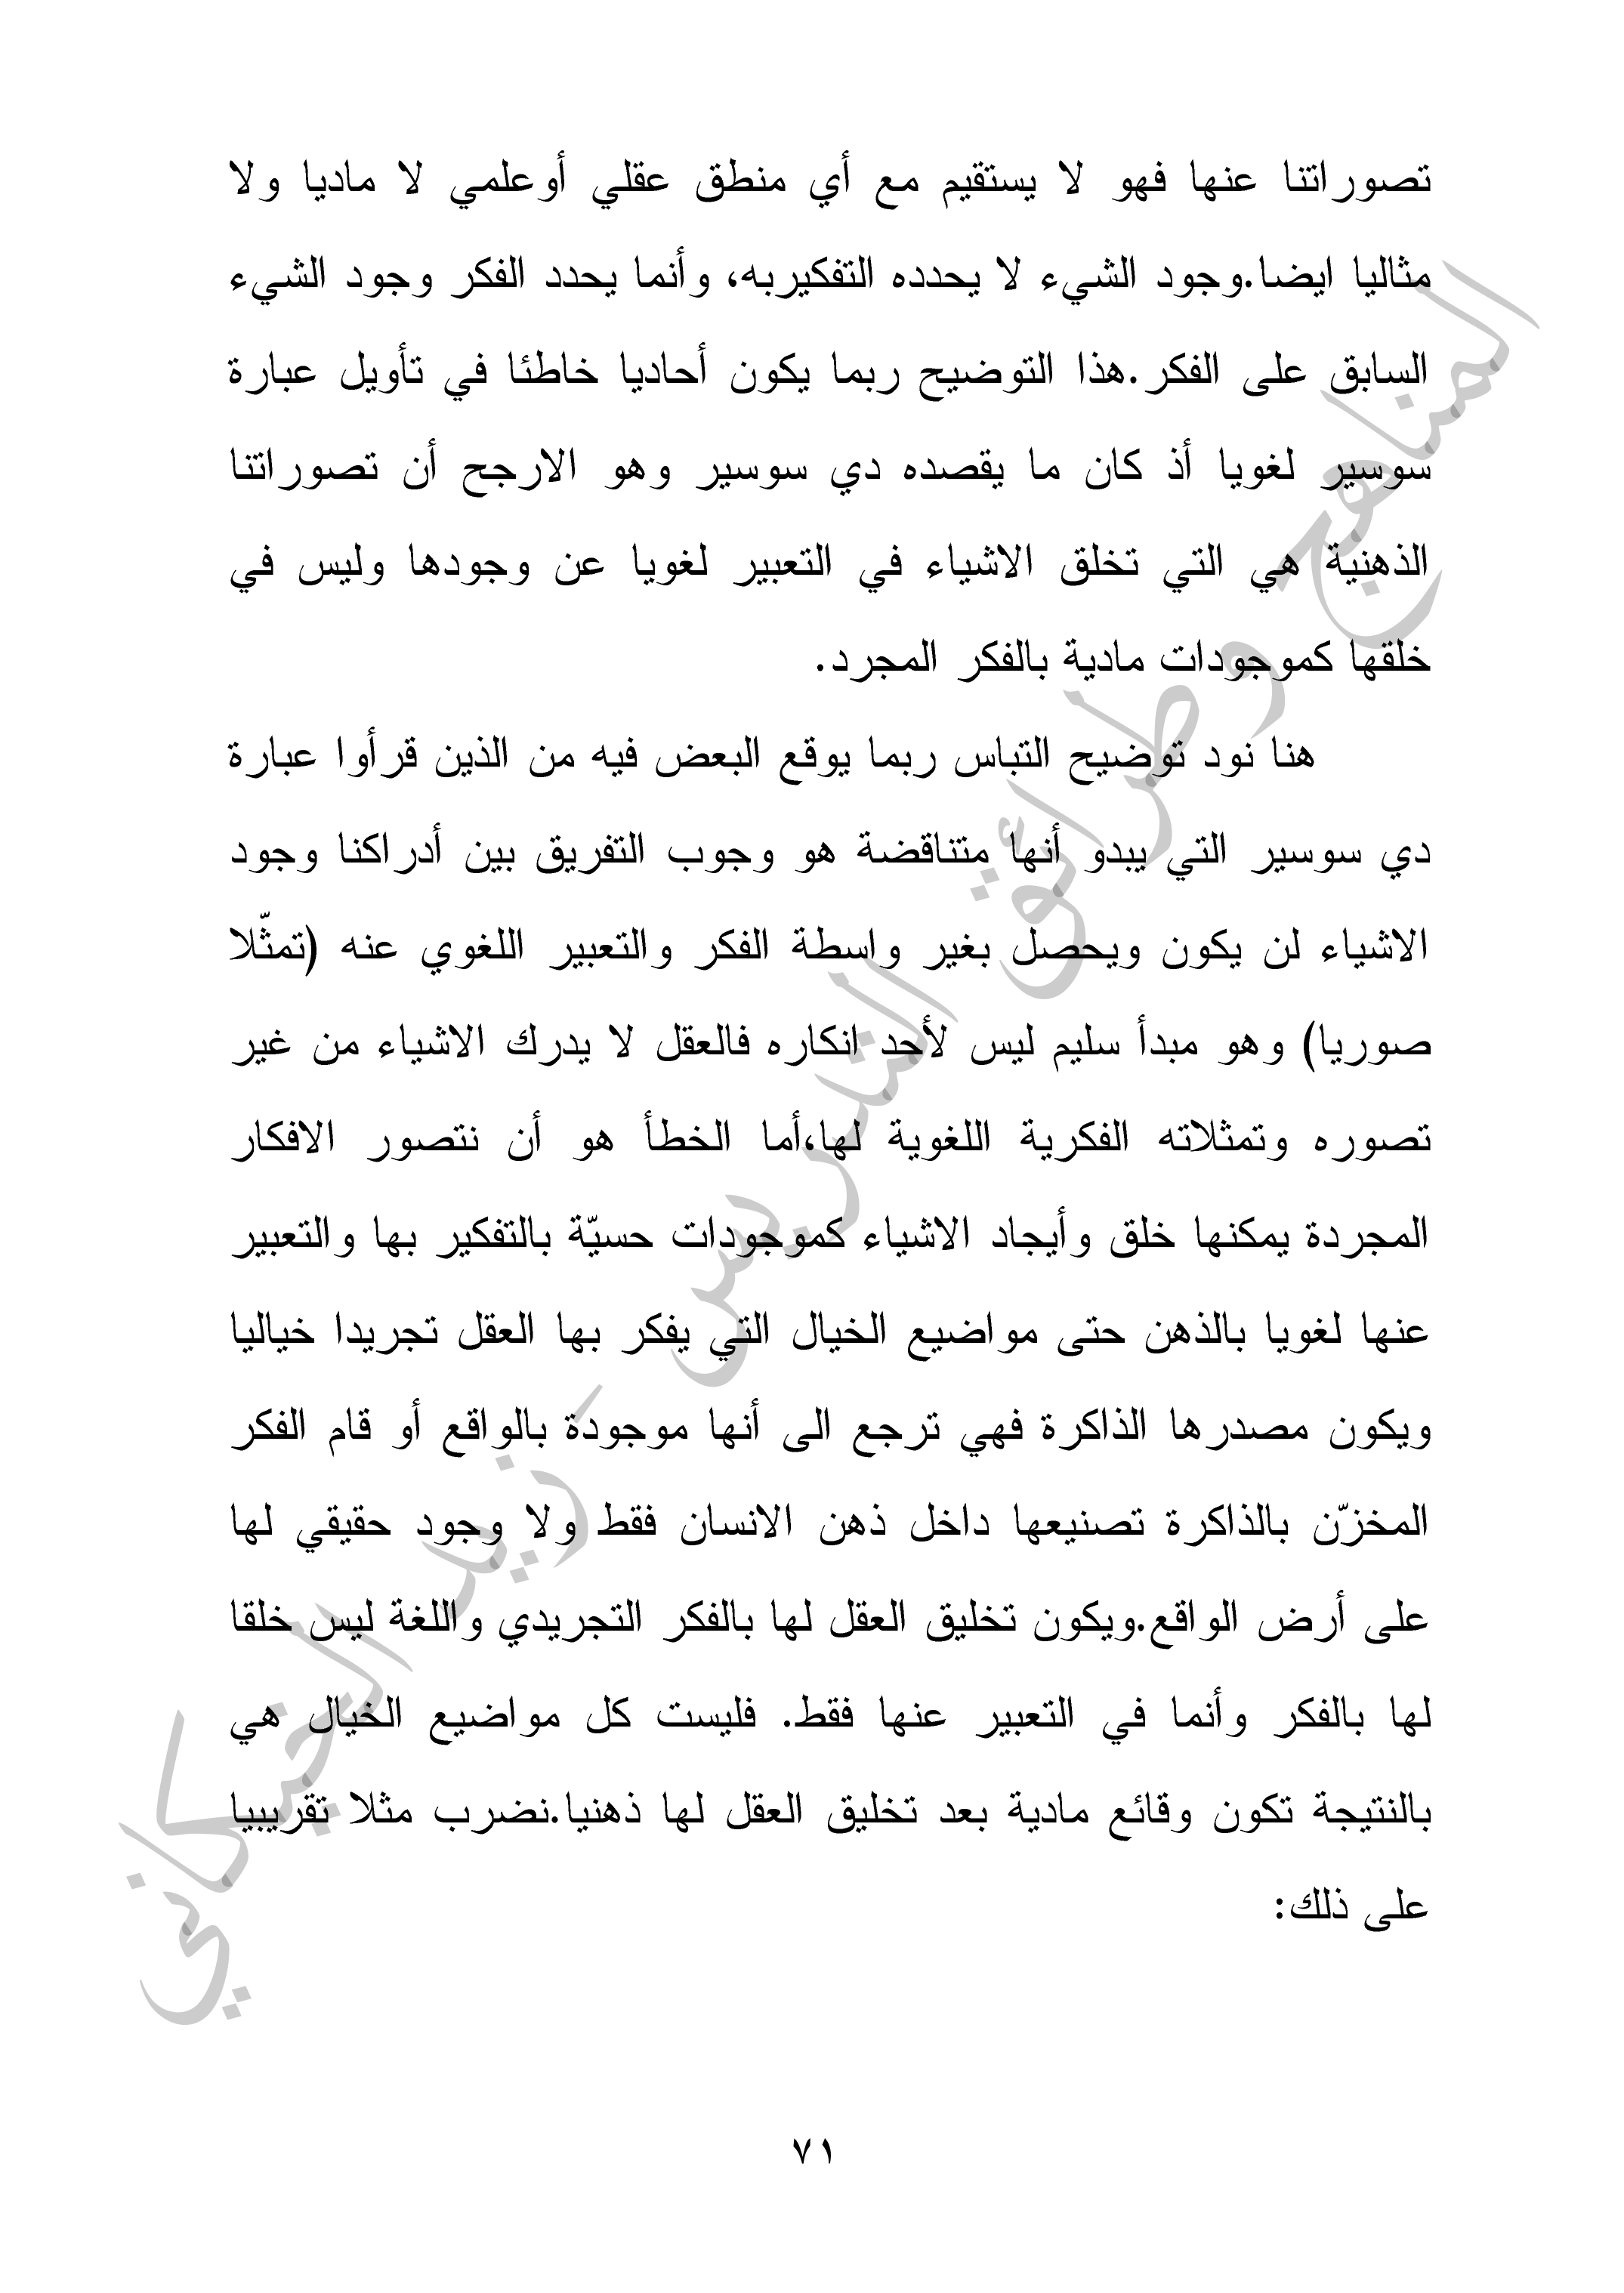 تصوراتنا عنها فهو لا يستقيم مع أي منطق عقلي أوعلمي لا ماديا ولا
مثاليا ايضا.وجود الشيء لا يحدده التفكيربه، وأنما يحدد الفكر وجود الشيء
السابق على الفكر.هذا التوضيح ربما يكون أحاديا خاطئا في تأويل عبارة
سوسير لغويا أذ كان ما يقصده دي سوسير وهو الارجح أن تصوراتنا
الذهنية هي التي تخلق الاشياء في التعبير لغويا عن وجودها وليس في
خلقها كموجودات مادية بالفكر المجرد.
هنا نود توضيح التباس ربما يوقع البعض فيه من الذين قرأوا عبارة
دي سوسير التي يبدو أنها متناقضة هو وجوب التفريق بين أدراكنا وجود
الاشياء لن يكون ويحصل بغير واسطة الفكر والتعبير اللغوي عنه (تمثّلا
صوريا) وهو مبدأ سليم ليس لأحد انكاره فالعقل لا يدرك الاشياء من غير
تصوره وتمثلاته الفكرية اللغوية لها،أما الخطأ هو أن نتصور الافكار
المجردة يمكنها خلق وأيجاد الاشياء كموجودات حسيّة بالتفكير بها والتعبير
عنها لغويا بالذهن حتى مواضيع الخيال التي يفكر بها العقل تجريدا خياليا
ويكون مصدرها الذاكرة فهي ترجع الى أنها موجودة بالواقع أو قام الفكر
المخزّن بالذاكرة تصنيعها داخل ذهن الانسان فقط ولا وجود حقيقي لها
على أرض الواقع.ويكون تخليق العقل لها بالفكر التجريدي واللغة ليس خلقا
لها بالفكر وأنما في التعبير عنها فقط. فليست كل مواضيع الخيال هي
بالنتيجة تكون وقائع مادية بعد تخليق العقل لها ذهنيا.نضرب مثلا تقريبيا
على ذلك:
المناهج وطرائق التدريس - زيد الخيكاني
٧١